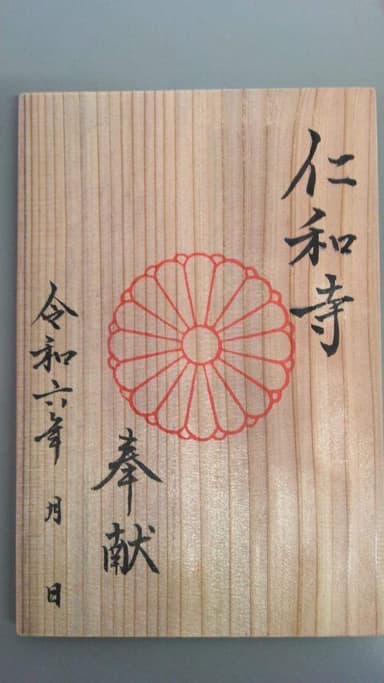 仁和寺
奉献
令和六年 月 日